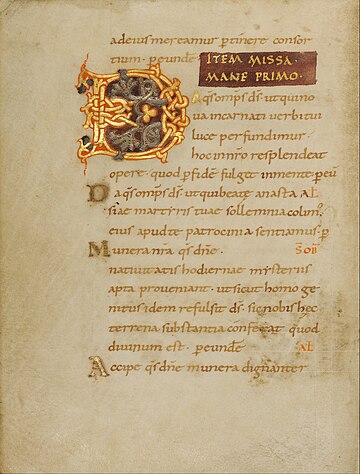 adeius mereamur ptinere consor
tium . p eundē
ITEM MISSA ·
MANE PRIMO ·
D
a qs omps ds̄ . ut qui no
ua incarnati uerbi tui
luce perfundimur .
hoc in nr̄o resplendeat
opere . quod p fidē fulget in mente . p eū
Da qs omps ds̄ . ut qui beatę anasta
siae martyris tuae sollemnia colim' .
eius apud te patrocinia sentiamus . p
Munera nr̄a qs dn̄e .
nativitatis hodiernae mysteriis
apta proueniant . ut sicut homo ge
nitus idem refulsit ds̄ . sic nobis hęc
terrena substantia conferat quod
diuinum est . p eundē
Accipe qs dn̄e munera dignanter